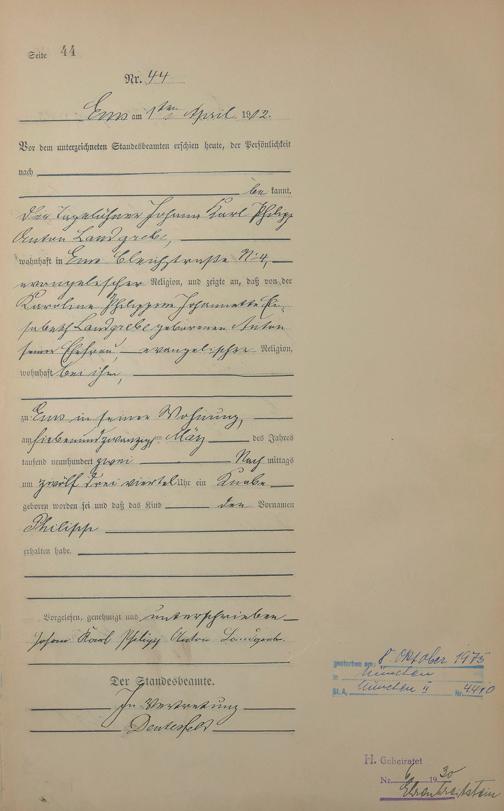 Seite 44
Nr. 44
Ems am 1ten April 1902.
Vor dem unterzeichneten Standesbeamten erschien heute, der Persönlichkeit
nach
be kannt,
der Tagelöhner Johann Karl Philipp
Anton Landgrebe,
wohnhaft in Ems Bleichstraße No 4,
evangelischer Religion, und zeigte an, daß von der
Karoline Philippine Johannette Eli-
sabeth Landgrebe geborenen Anton
seiner Ehefrau, evangelischer Religion,
wohnhaft bei ihm,
zu Ems in seiner Wohnung,
am siebenundzwanzigsten März des Jahres
tausend neunhundert zwei Nach mittags
um zwölf drei viertel Uhr ein Knabe
geboren worden sei und daß das Kind den Vornamen
Philipp
erhalten habe.
Vorgelesen, genehmigt und unterschrieben
Johann Karl Philipp Anton Landgrebe
Der Standesbeamte.
In Vertretung
gestorben am 8. Oktober 1975
in München
St.A. München II Nr. 4410
H. Geheiratet
Nr. 6 1930
Ehrenbreitstein